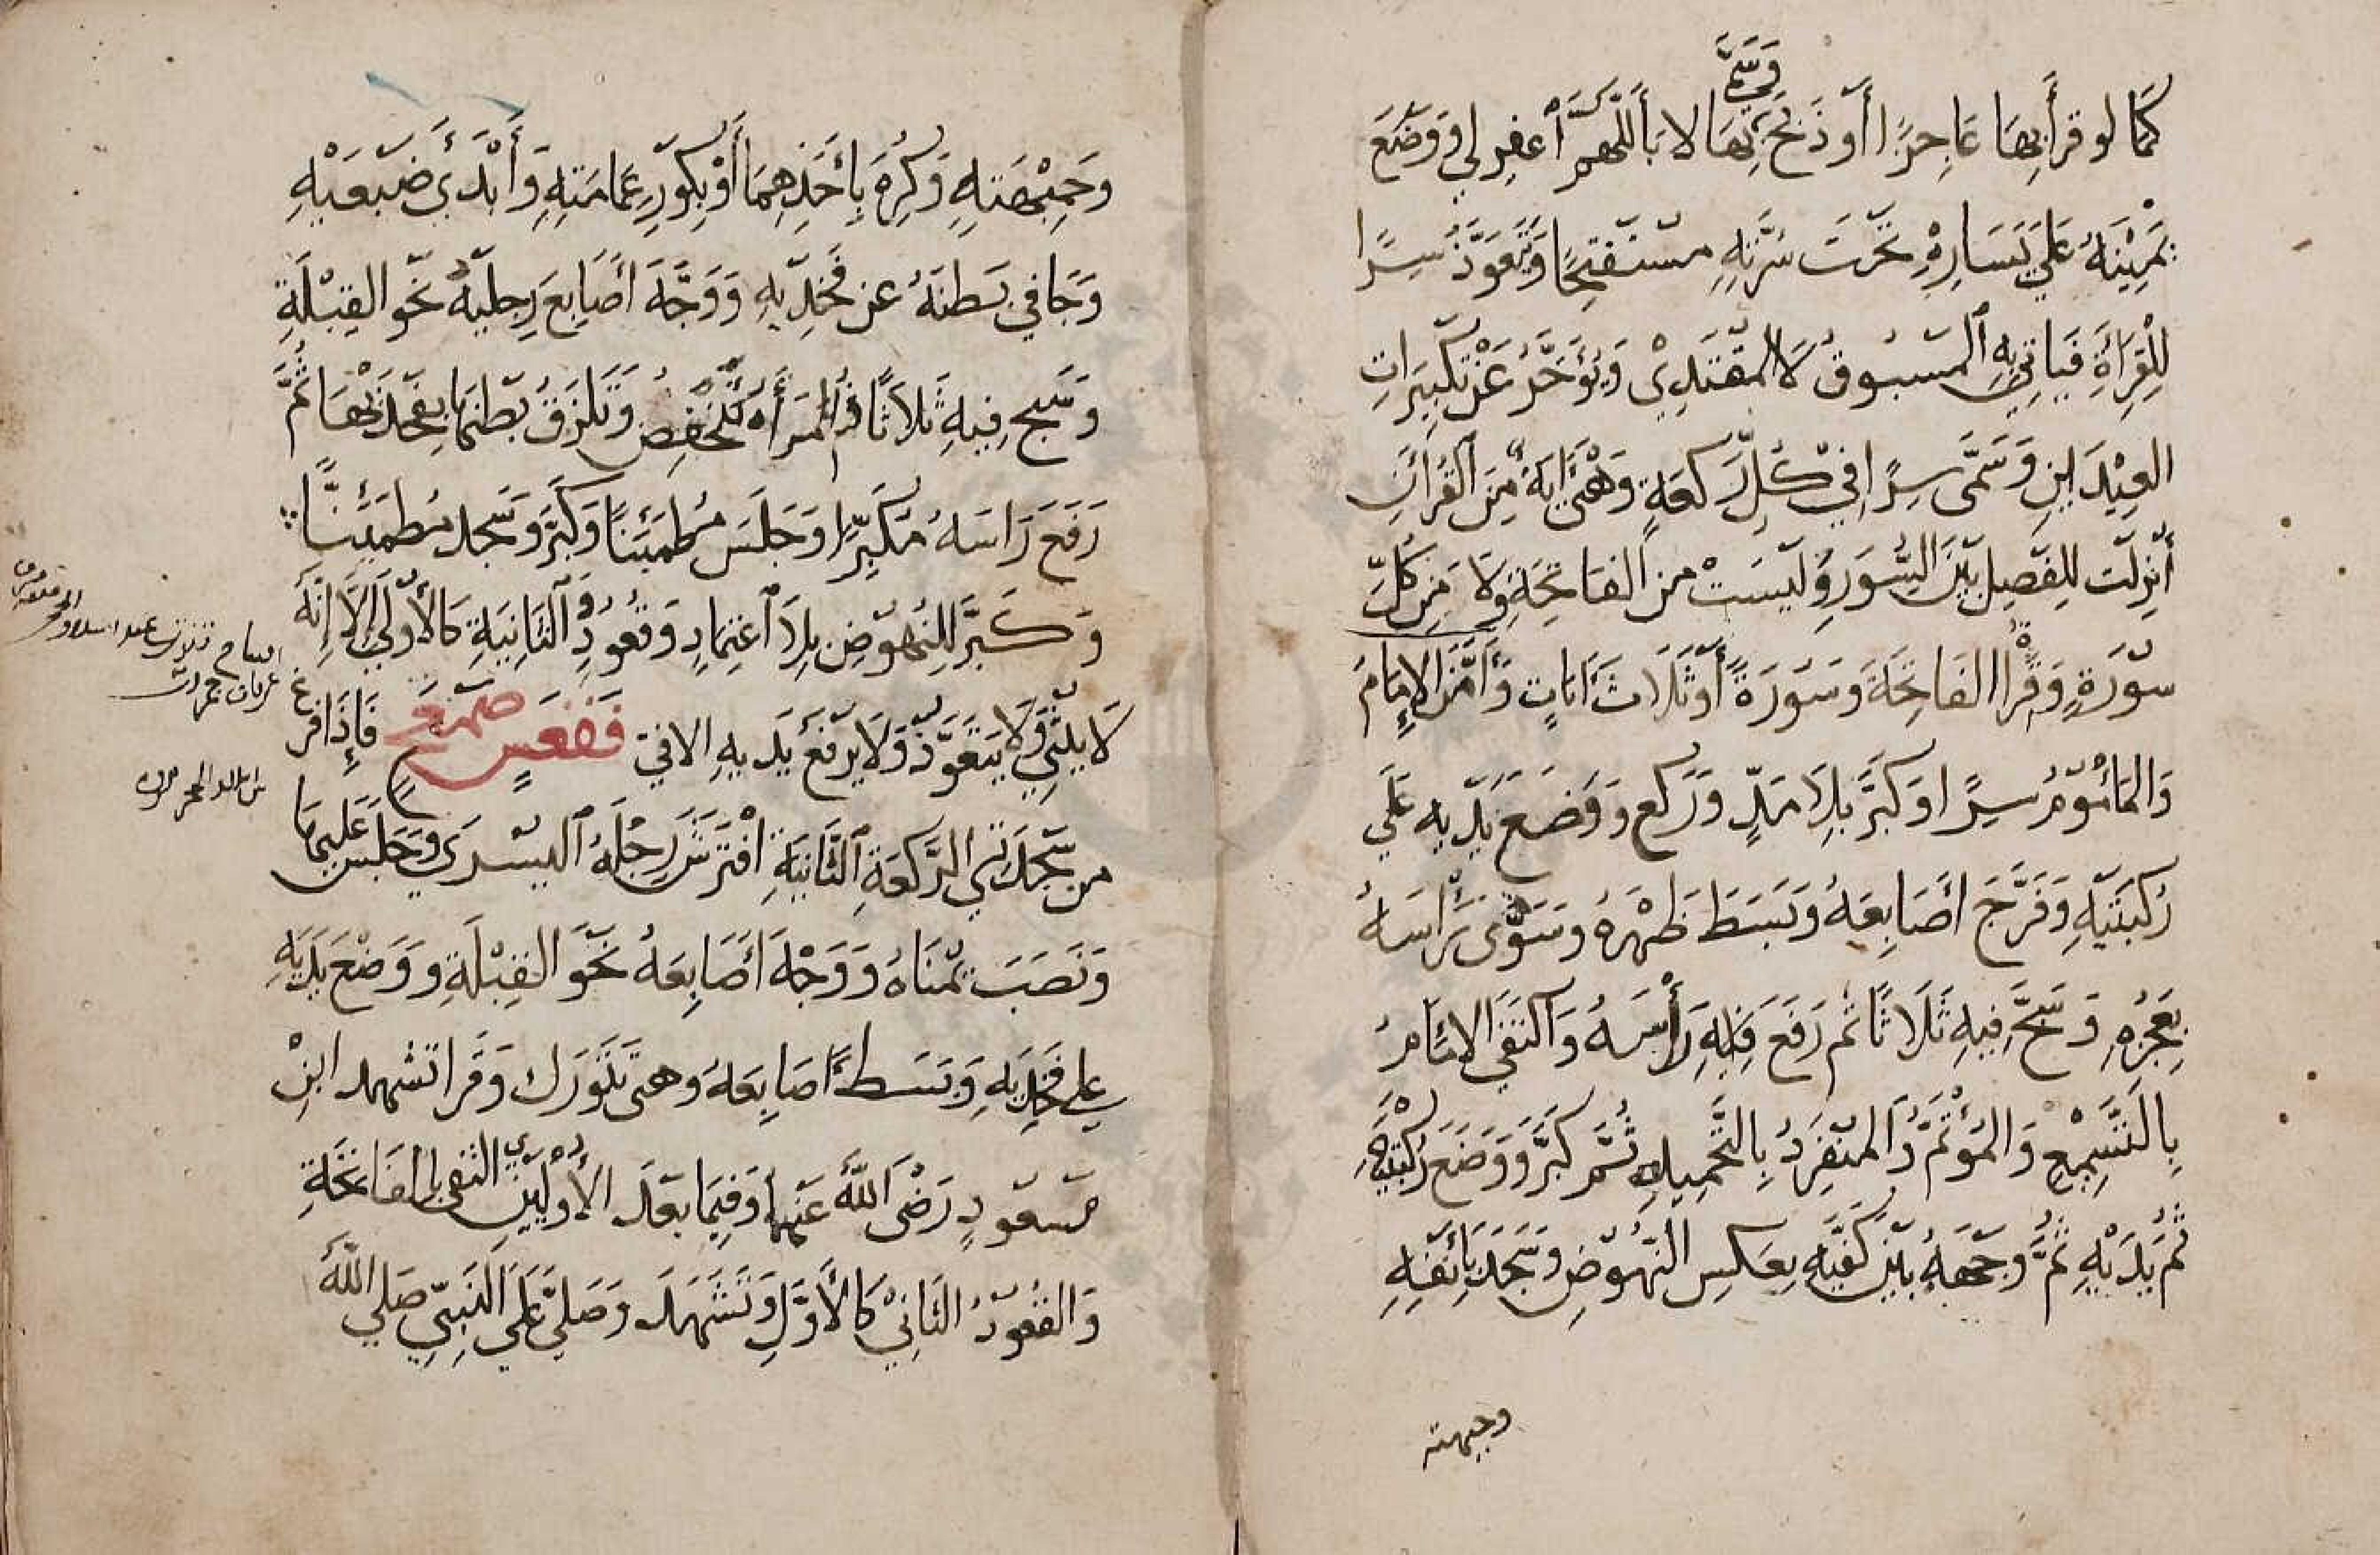 وسمى
كما لو قرأ بها عاجزا أو ذبح بها لا باللهم اغفر لي ووضع
يمينه على يساره تحت سرته مستفتحا وتعوذ سرا
للقراءة فياتي به المسبوق لا المقتدي ويؤخر عن تكبيرات
العيدين وسمى سرا في كل ركعة وهي اية من القرأن
أنزلت للفصيل بين السور وليست من الفاتحة ولا من كل
سورة وقرا الفاتحة وسورة أو ثلاث ايات وأمن الإمام
والمأموم سرا وكبر بلا مد وركع ووضع يديه على
ركبتيه وفرج اصابعه وبسط ظهره وسوى راسه
بعجزه وسبح فيه ثلاثا ثم رفع رأسه واكتفى الامام
بالتسميع والمؤتم والمنفرد بالتحميد ثم كبر ووضع ركبتيه
ثم يديه ثم وجهه بين كفيه بعكس النهوض وسجد بانفه
وجبهته
وجبهته وكره باحدهما أو بكور عمامته وأبدى ضبعيه
وجافى بطنه عن فخديه ووجه اصابع رجليه نحو القبلة
وسبح فيه ثلاثا والمرأة تنخفض وتلزق بطنها بفخذيها ثم
رفع راسه مكبرا وجلس مطمئنا وكبر وسجد مطمئنا
وكبر للنهوض بلا اعتماد وقعود والثانية كالأولى إلا إنه
لا يثني ولا يتعوذ ولا يرفع يديه الا في فقعس صمعج فإذا فرغ
من سجدتي الركعة الثانية افترش رجله اليسرى وجلس عليها
ونصب يمناه ووجه أصابعه نحو القبلة ووضع يديه
على فخديه وبسط أصابعه وهي تتورك وقرا تشهد ابن
مسعود رضى الله عنهما وفيما بعد الأوليين اكتفى بالفاتحة
والقعود الثاني كالأول وتشهد وصلى على النبي صلي الله